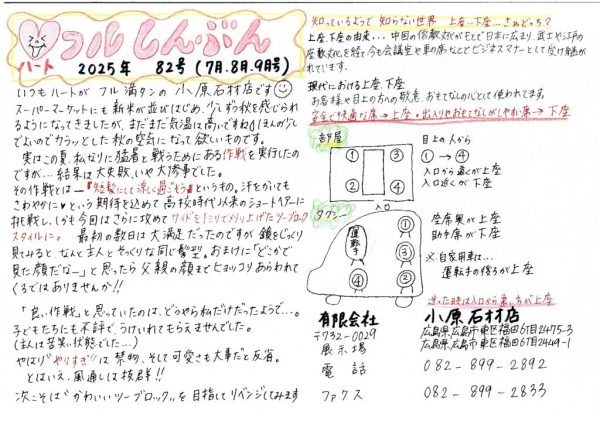 ハート
フルしんぶん
2025年 82号(7月.8月.9月号)
いつもハートがフル満タンの小原石材店です
スーパーマーケットにも新米が並びはじめ、少しずつ秋を感じられ
るようになってきましたが、まだまだ気温は高いですね(ほんの少し
でよいのでカラッとした秋の空気になって欲しいものです。
実はこの夏、私なりに猛暑と戦うためにある作戦を実行したの
ですが…結果は大失敗、いや大惨事でした。
その作戦とは―『短髪にして涼しく過ごそう』というもの。汗をかいても
さわやかに♥という期待を込めて高校時代以来のショートヘアーに
挑戦し、しかも今回はさらに攻めてサイドを1ミリで刈り上げたツーブロック
スタイルに。 最初の数日は大満足だったのですが鏡をじっくり
見てみると、なんと主人とそっくりな同じ髪型。おまけに「どこかで
見た顔だな〜」と思ったら父親の顔までヒョッコリあらわれて
くるではありませんか!!
「良い作戦」と思っていたのは、どうやら私だけだったようで…。
子どもたちにも不評で、うけいれてもらえませんでした。
(主人は苦笑い状態でした…)
やはり"やりすぎ"は禁物、そして可愛さも大事だと反省。
とはいえ、風通しは抜群!!
次こそは"かわいいツーブロック"を目指してリベンジしてみます
知っているようで知らない世界 上座…下座…さぁどっち?
上座、下座の由来…中国の儒教文化がもとで日本に広まり、武士や江戸の
座敷文化を経て今も会議室や車の席などでビジネスマナーとして受け継が
れています。
現代における上座、下座
お客様や目上の方への敬意、おもてなしの心として使われてます。
安全で快適な席→上座・出入りやおもてなしがしやすい席→下座
部屋
① ③
② ④
入口
目上の人から
①→④
入口から遠くが上座
入口近くが下座
タクシー
運転手
①
③
②
④
座席奥が上座
助手席が下座
※自家用車は…
運転手の隣りが上座
迷った時は入口から遠い方が上座
有限会社 小原石材店
〒732-0029 広島県広島市東区福田6丁目2475-3
展示場 広島県広島市東区福田6丁目2449-1
電話 082-899-2892
ファクス 082-899-2833